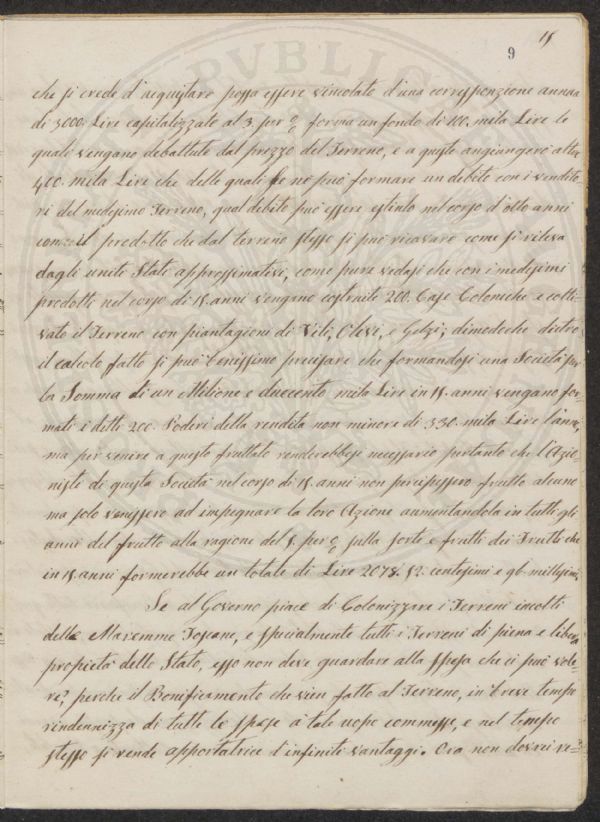 9 15
che si crede d'acquistare possa essere vincolato d'una corresponzione annua
di 3000. Lire capitalizzato al 3. per % forma un fondo di 100. mila Lire le
quali vengano debattute dal prezzo del Terreno, e a queste aggiungero altre
400. mila Lire che delle quali se ne può formare un debito con i vendito-
ri del medesimo Terreno, qual debito può essere estinto nel corso d'otto anni
con il prodotto che dal terreno stesso si può ricavare come si rileva
dagli uniti Stati approssimativi, come pure vedasi che con i medesimi
prodotti nel corso di 15. anni vengano costruite 200. Case Coloniche e colti-
vato il Terreno con piantagioni di Viti, Olivi, e Gelsi; dimodoche dietro
il calcolo fatto si può benissimo precisare che formandosi una Società per
la Somma di un Milione e duecento mila Lire in 15. anni vengano for-
mati i detti 200. Poderi della rendita non minore di 330. mila Lire l'anno,
ma per venire a questo fruttato renderebbesi necessario pertanto che l'Azio-
niste di questa Società nel corso di 15. anni non percipessero frutto alcuno
ma solo venissero ad impegnare la loro Azione aumentandola in tutti gli
anni del frutto alla ragione del 5. per % sulla sorte e frutti dei Frutti che
in 15. anni formerebbe un totale di Lire 2078. 52. centesimi e 96 millesimi.
Se al Governo piace di Colonizzare i Terreni incolti
delle Maremme Toscane, e specialmente tutti i Terreni di piena e libera
propietà dello Stato, esso non deve guardare alla spesa che ci può vole-
re, perche il Bonificamento che vien fatto al Terreno, in breve tempo
rindennizza di tutte le spese a tale uopo commesse, e nel tempo
stesso si rende apportatrice d'infiniti vantaggi. Ora non dovrei re-